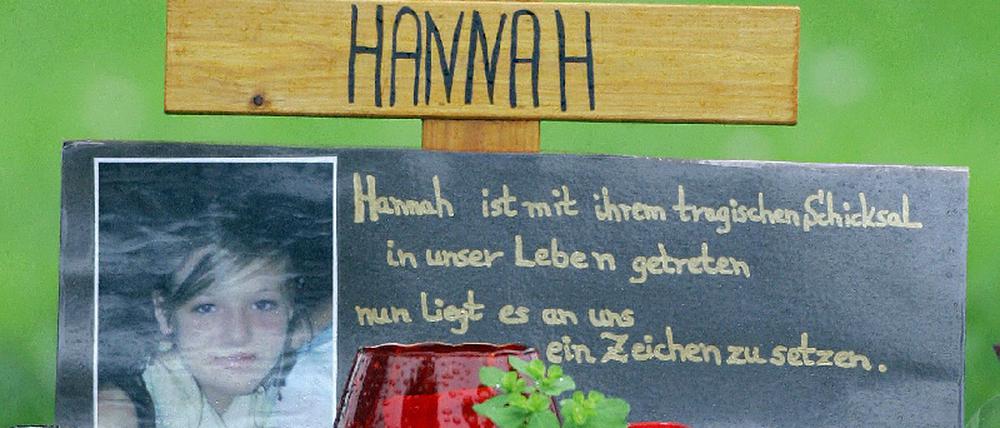 HANNAH
Hannah ist mit ihrem tragischen Schicksal
in unser Leben getreten
nun liegt es an uns
ein Zeichen zu setzen.